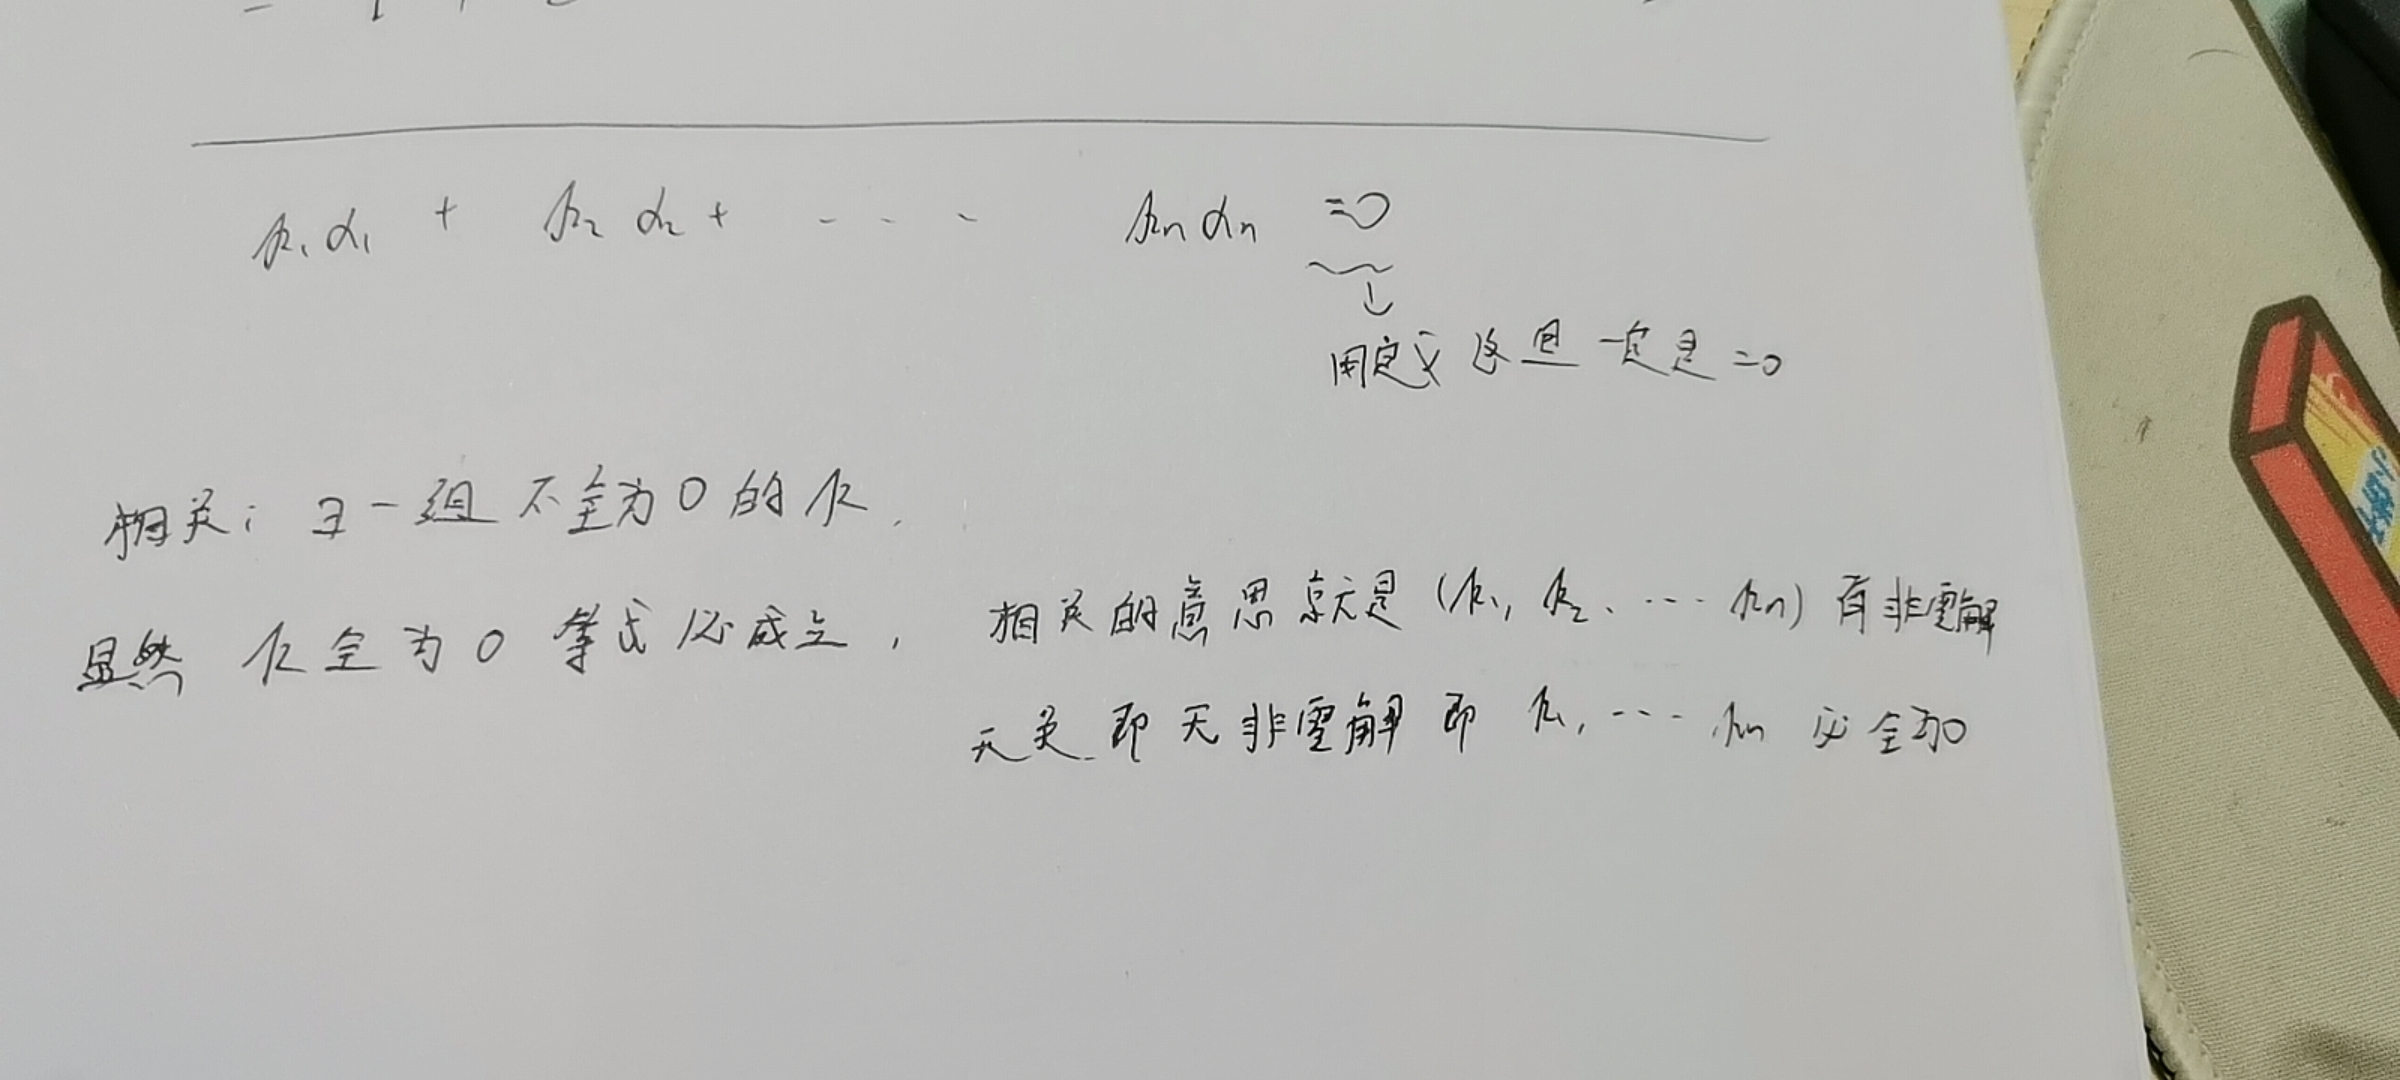 k₁α₁ + k₂α₂ + ···· knαn =0
用定义这里一定是=0
相关:ヨ一组不全为0的k.
显然 k全为0等式必成立, 相关的意思就是(k₁, k₂、···kn)有非零解
无关即无非零解即 k₁,···kn 必全为0